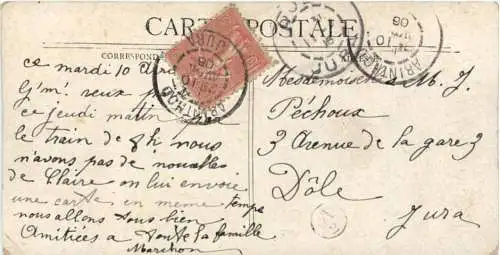 CARTE POSTALE
CORRESPONDANCE
ce mardi 10
ce jeudi matin
le train de 8h nous
n'avons pas de nouvelles
de Claire on lui envoie
une carte en même temps
nous allons tous bien
Amitiées a toute la famille
Mademoiselle M. J.
Péchoux
3 Avenue de la gare 3
Dôle
Jura
ARINTHOD
JURA
06
ARINTHOD
06